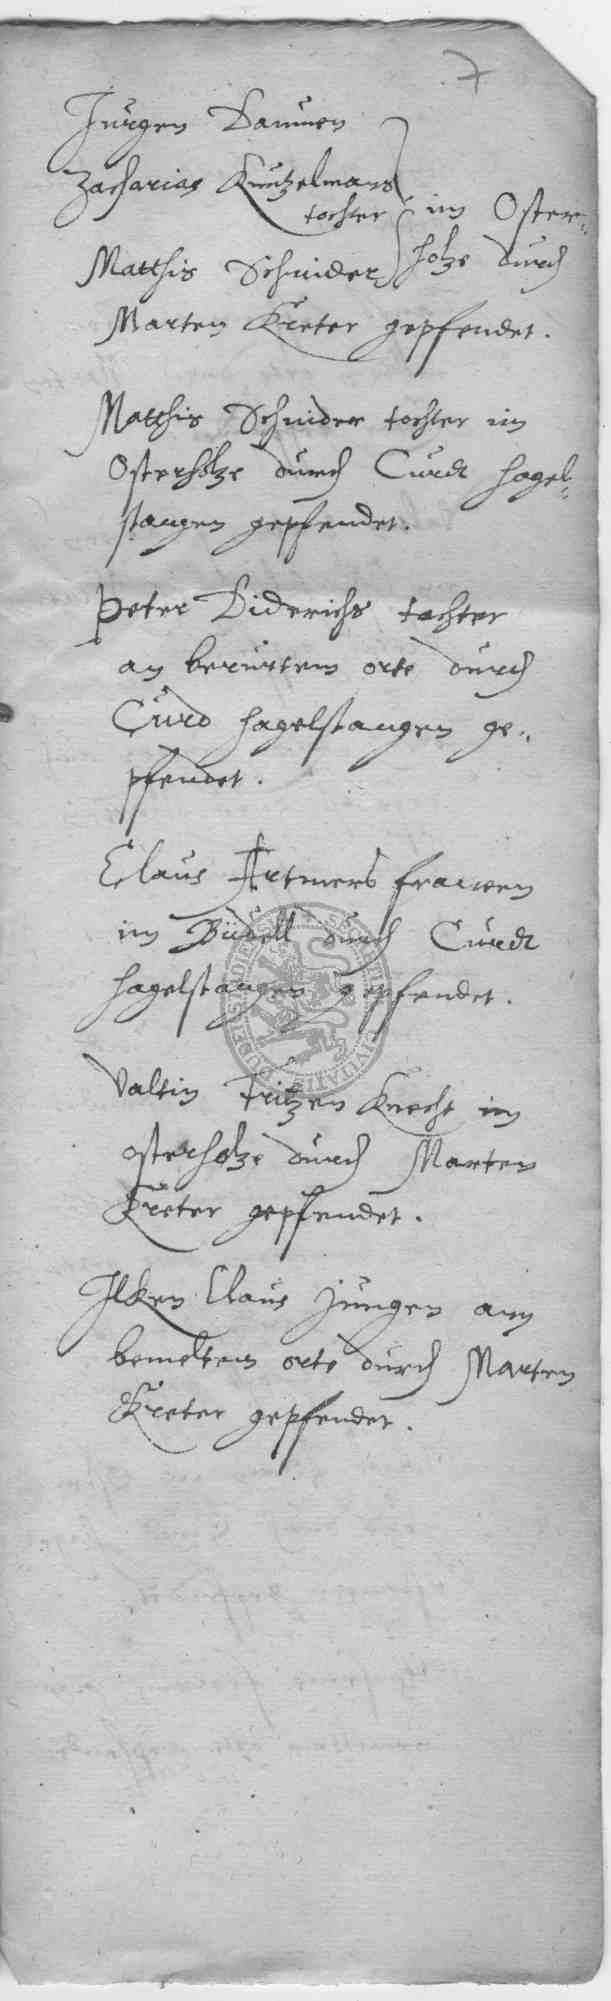 7
Jurgen Dannen
Zacharias Kuntzelmans
tochter im Oster-
Matthis Schnider holze durch
Marten Kreter gepfendet.
Matthis Schnider tochter im
Osterholze durch Curdt Hagel-
stangen gepfendet.
Peter Diderichs tochter
an berurtem orte durch
Curd Hagelstangen ge-
pfendet.
Claus Artmers frauwen
im Büdell durch Curdt
Hagelstangen gepfendet.
Valtin Fritzen Knecht im
osterholze durch Marten
Kreter gepfendet.
Ilken Claus jungen am
bemeltem orte durch Marten
Kreter gepfendet.